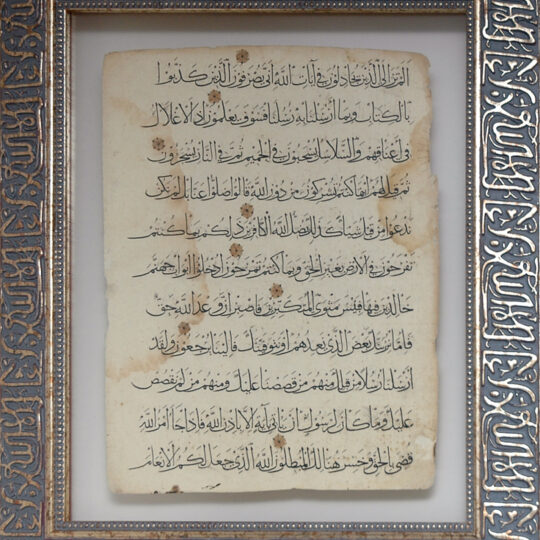 الم تر الى الذين يجادلون في آيات الله أنى يصرفون الذين كذبوا
بالكتاب وبما أرسلنا به رسلنا فسوف يعلمون إذ الأغلال
في أعناقهم والسلاسل يسحبون في الحميم ثم في النار يسجرون
ثم قيل لهم أينما كنتم تشركون من دون الله قالوا ضلوا عنا بل لم نكن
ندعوا من قبل شيئا كذلك يضل الله الكافرين ذلكم بما كنتم
تفرحون في الأرض بغير الحق وبما كنتم تمرحون ادخلوا أبواب جهنم
خالدين فيها فبئس مثوى المتكبرين فاصبر إن وعد الله حق
فإما نرينك بعض الذي نعدهم أو نتوفينك فإلينا يرجعون ولقد
أرسلنا رسلا من قبلك منهم من قصصنا عليك ومنهم من لم نقصص
عليك وما كان لرسول أن يأتي بآية إلا بإذن الله فإذا جاء أمر الله
قضي بالحق وخسر هنالك المبطلون الله الذي جعل لكم الأنعام